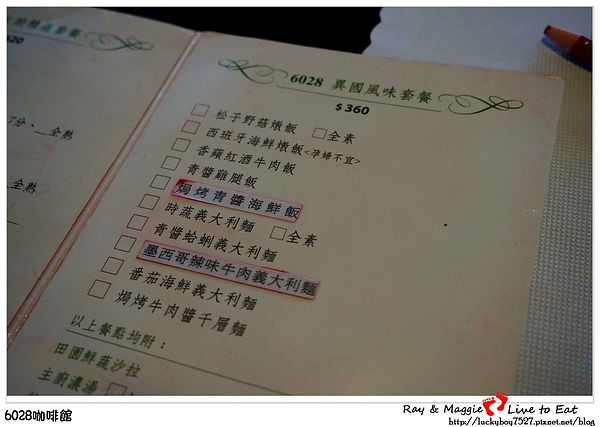 620
7分、__全熟
全熟
6028 異國風味套餐
$360
□ 松子野菇燉飯 □全素
□ 西班牙海鮮燉飯<孕婦不宜>
□ 香蘋紅酒牛肉飯
□ 青醬雞腿飯
□ 焗烤青醬海鮮飯
□ 時蔬義大利麵 □全素
□ 青醬蛤蜊義大利麵
□ 墨西哥辣味牛肉義大利麵
□ 番茄海鮮義大利麵
□ 焗烤牛肉醬千層麵
以上餐點均附：
田園鮮蔬沙拉
主廚濃湯 □
6028咖啡館
Ray & Maggie Live to Eat
http://luckyboy7527.pixnet.net/blog